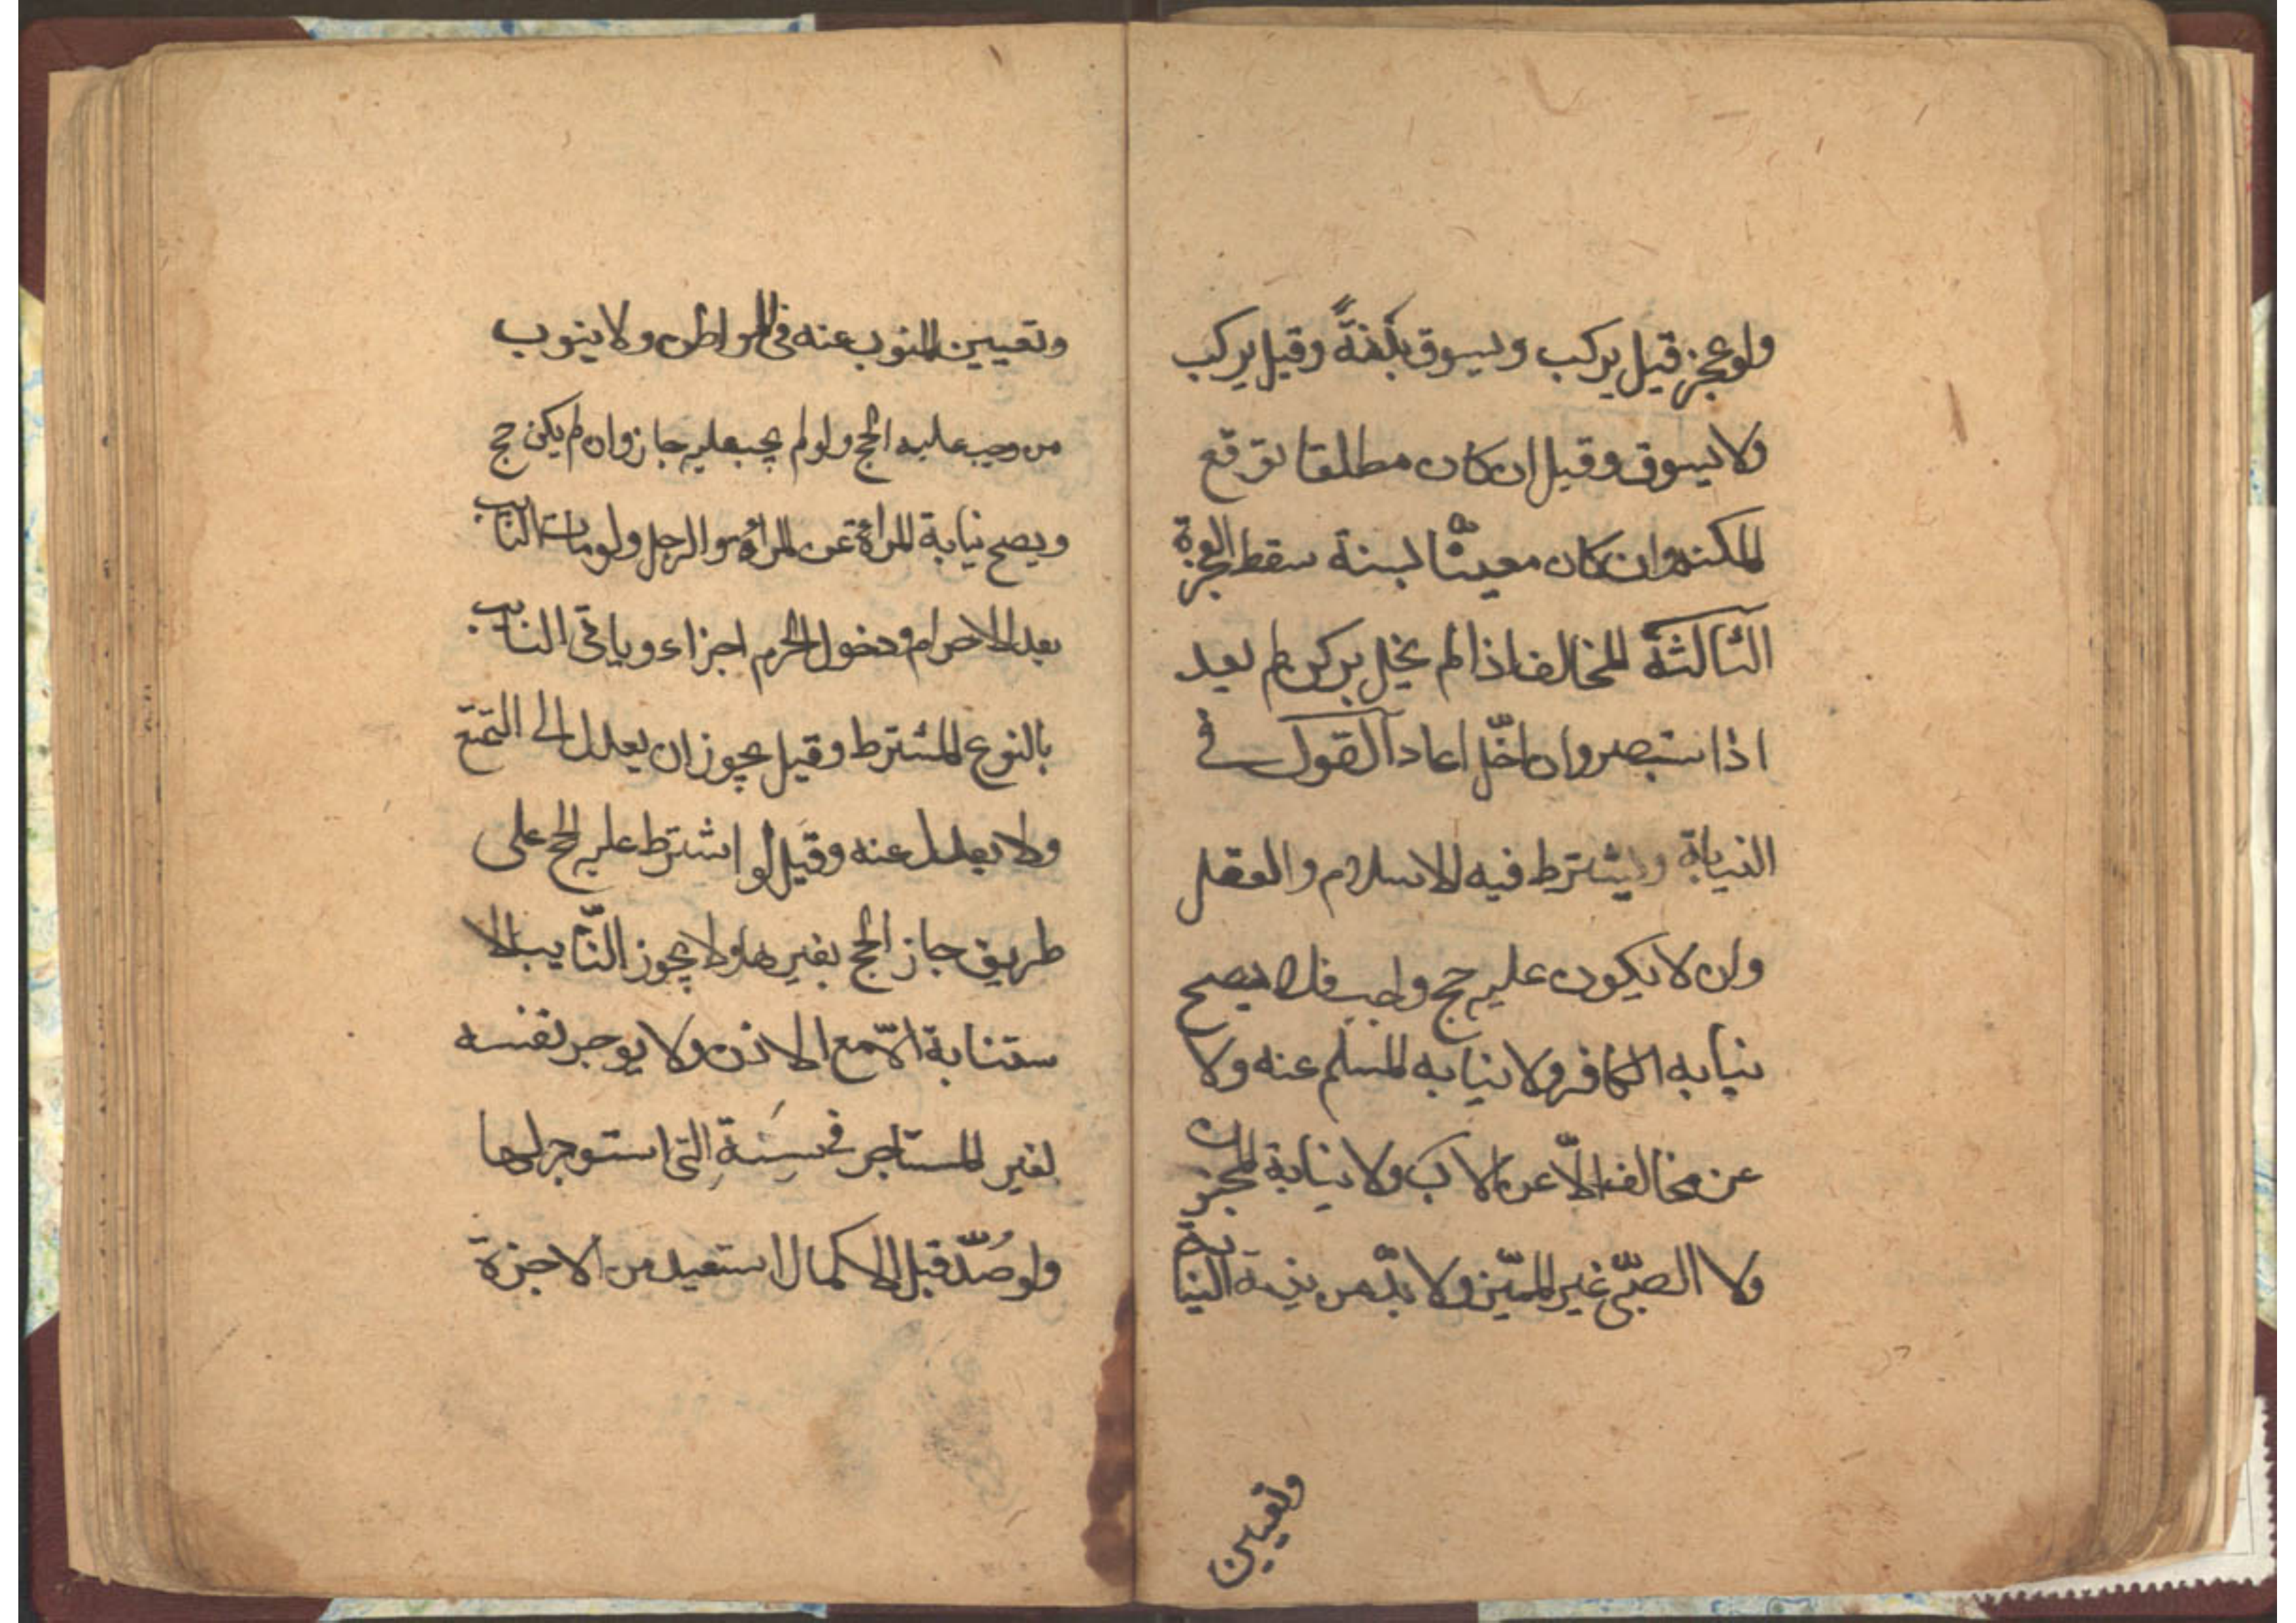 ولو عجز قيل يركب ويسوق بَدَنَةً وقيل يركب
ولا يسوق وقيل ان كان مطلقا توقع
المكنة وان كان معيّنًا لسنة سقط العجزه
الثالثة المخالف اذا لم يخل بركن لم يعد
اذا ستبصر وان اخلّ اعاد القول في
النيابة ويشترط فيه الاسلام والعقل
وان لا يكون عليه حج واجب فلا يصح
نيابه الكافر ولا نيابه المسلم عنه ولا
عن مخالف الّا عن الاب ولا نيابة المجنون
ولا الصبّي غير المميّز ولا بدّ من نية النيابة
وتعيين
وتعيين المنوب عنه في المواطن ولا ينوب
من وجب عليه الحج ولو لم يجب عليه جاز وان لم يكن حج
ويصح نيابة المراة عن المراة والرجل ولو مات النايب
بعد الاحرام ودخول الحرم اجزاء وياتى النايب
بالنوع المشترط وقيل يجوز ان يعدل الى التمتع
ولا يعدل عنه وقيل لو اشترط عليه الحج على
طريق جاز الحج بغيرها ولا يجوز النّايب الا
ستنابة الّا مع الاذن ولا يوجر نفسه
لغير المستاجر في سنة التى استوجر لها
ولو صُدّ قبل الاكمال استعيد من الاجرة